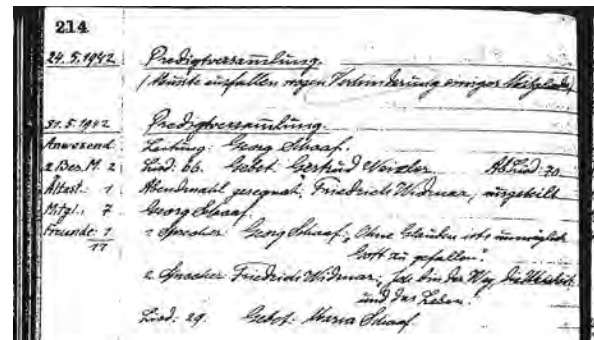 214
24.5.1942 Predigtversammlung.
(Musste ausfallen wegen Verhinderung einiger Mitglieder)
31.5.1942 Predigtversammlung.
Anwesend: Leitung: Georg Schaaf.
2 Bes. M. 2 Lied: 66. Gebet Gertrud Ab.Lied: 70.
Ältest.: 1 Abendmahl gesegnet: Friedrich Widmar, ausgeteilt
Mitgl.: 7 Georg Schaaf.
Freunde: 1 1 Sprecher: Georg Schaaf; „Ohne Glauben ist's unmöglich
11 Gott zu gefallen".
2 Sprecher Friedrich Widmar; „Ich bin der Weg, die Wahrheit
und das Leben".
Lied: 29. Gebet: Maria Schaaf.